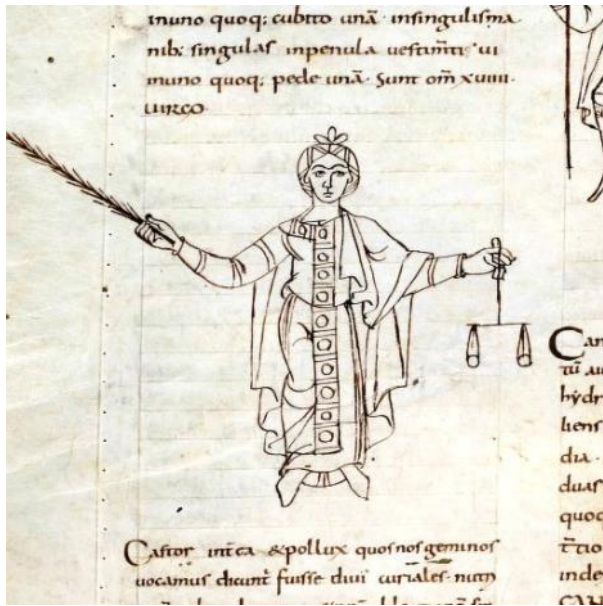 inuno quoq; cubito unā. insingulisma
nib; singulas inpenula uestim̄ti; ui
inuno quoq; pede unā. Sunt om̄ xuiiii.
UIRGO
Castor int̄ca &pollux quosnosgeminos
uocamus dicunt̄ fuisse diui curiales.
Can
tū au
hydr
liens
dia.
duas
quoq
t̄tio
inde